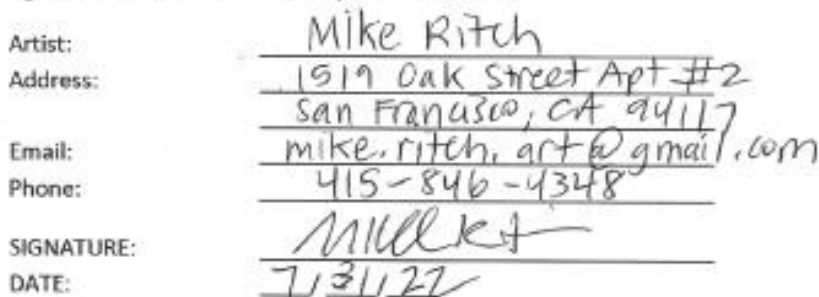 Artist: Mike Ritch
Address: 1519 Oak Street Apt #2
San Francisco, CA 94117
Email: mike.ritch.art@gmail.com
Phone: 415-846-4348
SIGNATURE:
DATE: 7/31/22